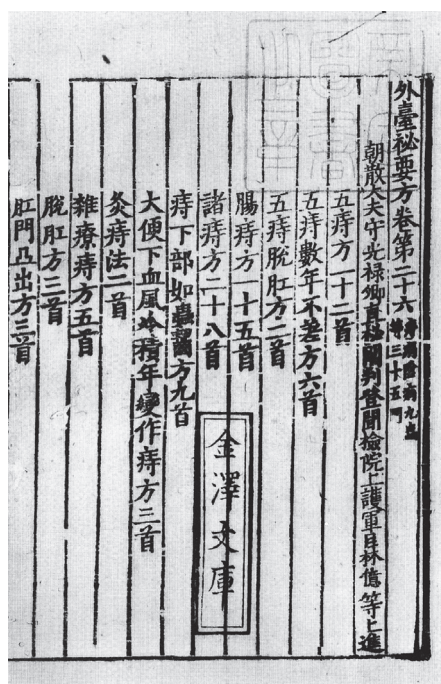 外臺祕要方卷第二十六
痔病陰病九蟲等三十五門
朝散大夫守光祿卿直祕閣判登聞檢院上護軍臣林億等上進
五痔方一十二首
五痔數年不差方六首
五痔脫肛方二首
腸痔方一十五首
諸痔方二十八首
痔下部如蟲齧方九首
大便下血風冷積年變作痔方三首
灸痔法二首
雜療痔方五首
脫肛方三首
肛門凸出方三首
金澤文庫